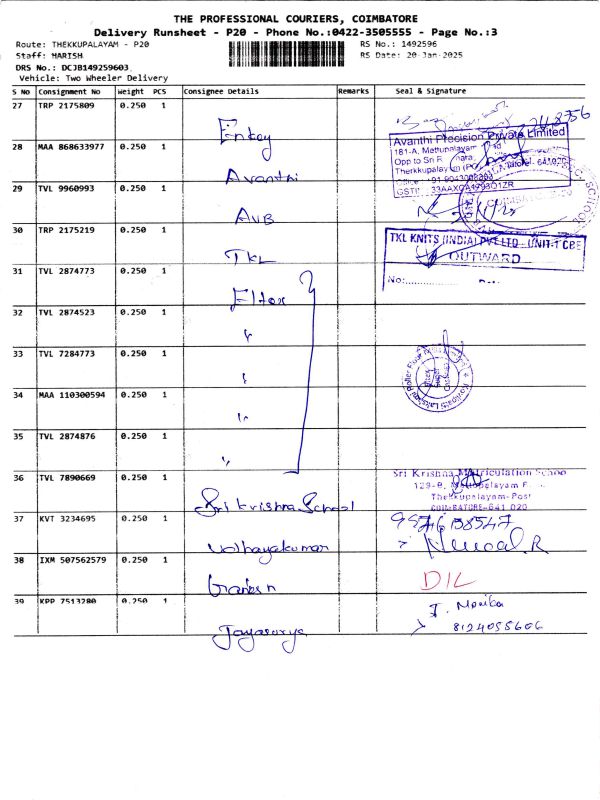 THE PROFESSIONAL COURIERS, COIMBATORE
Delivery Runsheet - P20 - Phone No.:0422-3505555 - Page No.:3
Route: THEKKUPALAYAM - P20
RS No.: 1492596
Staff: HARISH
RS Date: 20-Jan-2025
DRS No.: DCJB149259603
Vehicle: Two Wheeler Delivery
S No Consignment No Weight PCS Consignee Details Remarks Seal & Signature
27 TRP 2175809 0.250 1 Enkay
28 MAA 868633977 0.250 1 Avanthi
Avanthi Precision Private Limited
181-A, Mettupalayam
Opp to Sri R
Therkkupalayam (Po)
GSTI
29 TVL 9960993 0.250 1 AVB
30 TRP 2175219 0.250 1 TKL
TKL KNITS (INDIA) PVT LTD - UNIT-1 CBE
OUTWARD
No:
31 TVL 2874773 0.250 1 Eltex
32 TVL 2874523 0.250 1 "
33 TVL 7284773 0.250 1 "
34 MAA 110300594 0.250 1 "
35 TVL 2874876 0.250 1 "
36 TVL 7890669 0.250 1 Sri Krishna School
Sri Krishna Matriculation School
129-B, Mettupalayam
Thekkupalayam-Post
COIMBATORE-641 020
37 KVT 3234695 0.250 1 Udhayakumar
38 IXM 507562579 0.250 1 Ganesh
DIL
39 KPP 7513280 0.250 1 Jayasurya
J. Monika
8124055606